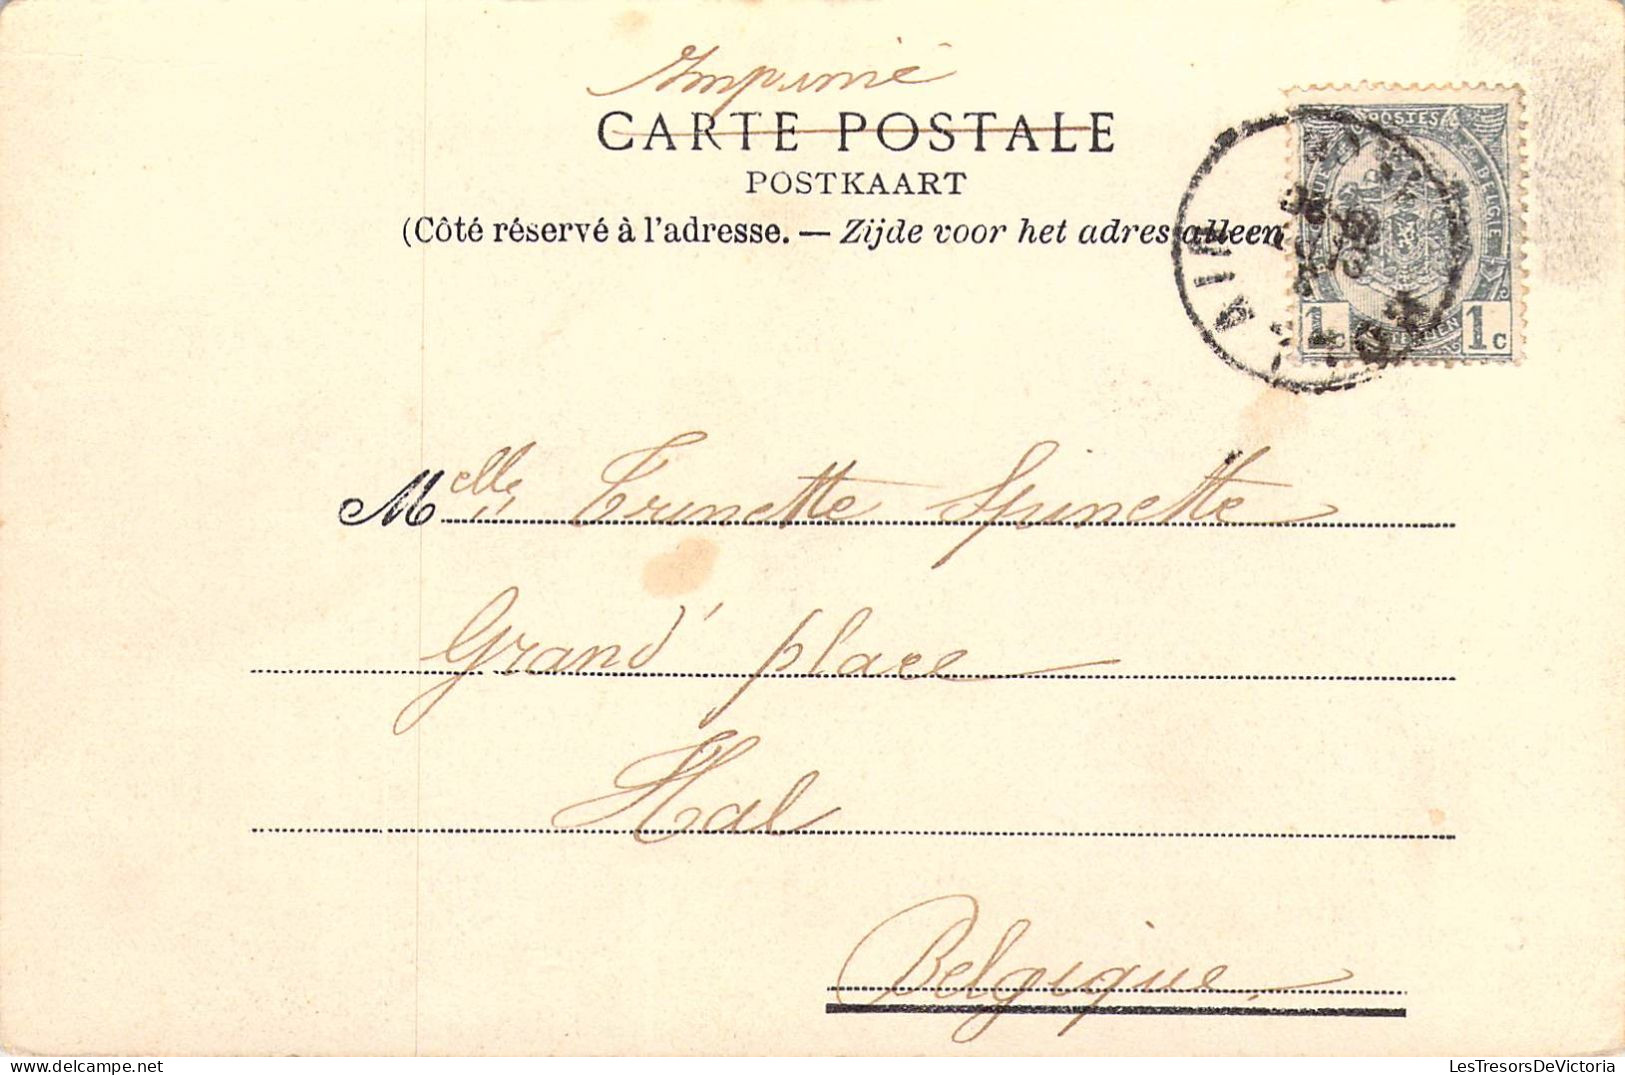 Imprimé
CARTE POSTALE
POSTKAART
(Côté réservé à l'adresse. — Zijde voor het adres alleen
POSTES
BELGIE
1c 1c
Melle Trinette Spinette
Grand' place
Hal
Belgique.
LesTresorsDeVictoria